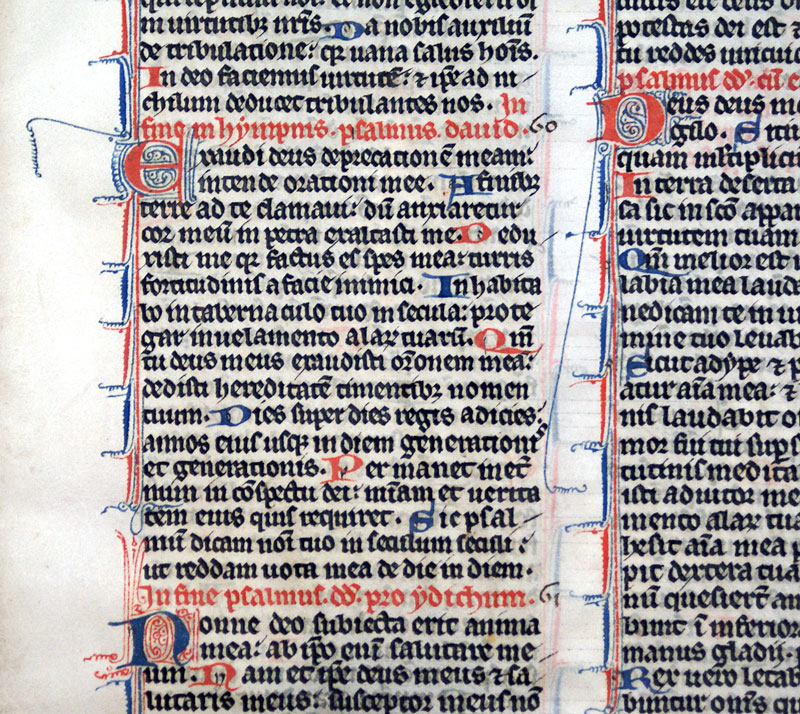 in uirtutibꝫ nr̄is. Da nobis auxiliū
de tribulatione: qꝛ uana salus hoīs.
In deo faciemus uirtutē: ⁊ ip̄e ad ni
chilum deducet tribulantes nos. In
fine in hympnis. psalmus. dauid. 60
Exaudi deus deprecationē meam:
intende orationi mee. A finibꝫ
terre ad te clamaui: dū anxiaretur
cor meū in petra exaltasti me. Dedu
xisti me qꝛ factus es spes mea: turris
fortitudinis a facie inimici. Inhabita
bo in tabernaculo tuo in secula: prote
gar in uelamento alaꝝ tuarū. Qm̄
tu deus meus exaudisti or̄onem meā:
dedisti hereditatē timentibꝫ nomen
tuum. Dies super dies regis adicies:
annos eius usqꝫ in diem generationis
et generationis. Permanet in et̄
num in cōspectu dei: mīam et uerita
tem eius quis requiret. Sic psal
mū dicam noī tuo in seculum seculi:
ut reddam uota mea de die in diem.
In fine psalmus. dd. pro ydichum. 61
Nonne deo subiecta erit anima
mea: ab ip̄o enī salutare me
um. Nam et ip̄e deus meus ⁊ sa
lutaris meus: susceptor meus nō
potestas dei est ⁊
tu reddes unicuiq
psalmus dd. cū e
Deus deus me
gilo. Siti
quam m̄ltiplicit
In terra deserta
sa sic in sc̄o appar
uirtutem tuam
Qm̄ melior est
labia mea laud
nedicam te in ui
mine tuo leuab
Sicut adype ⁊ p
atur aīa mea: ⁊
nis laudabit o
mor fui tui sup s
tutinis medita
isti adiutor me
mento alaꝝ tua
hesit aīa mea p
pit dextera tua
nū quesierūt an
bunt ī inferior
manus gladij. p
Rex uero letab
buntur om̄s qu